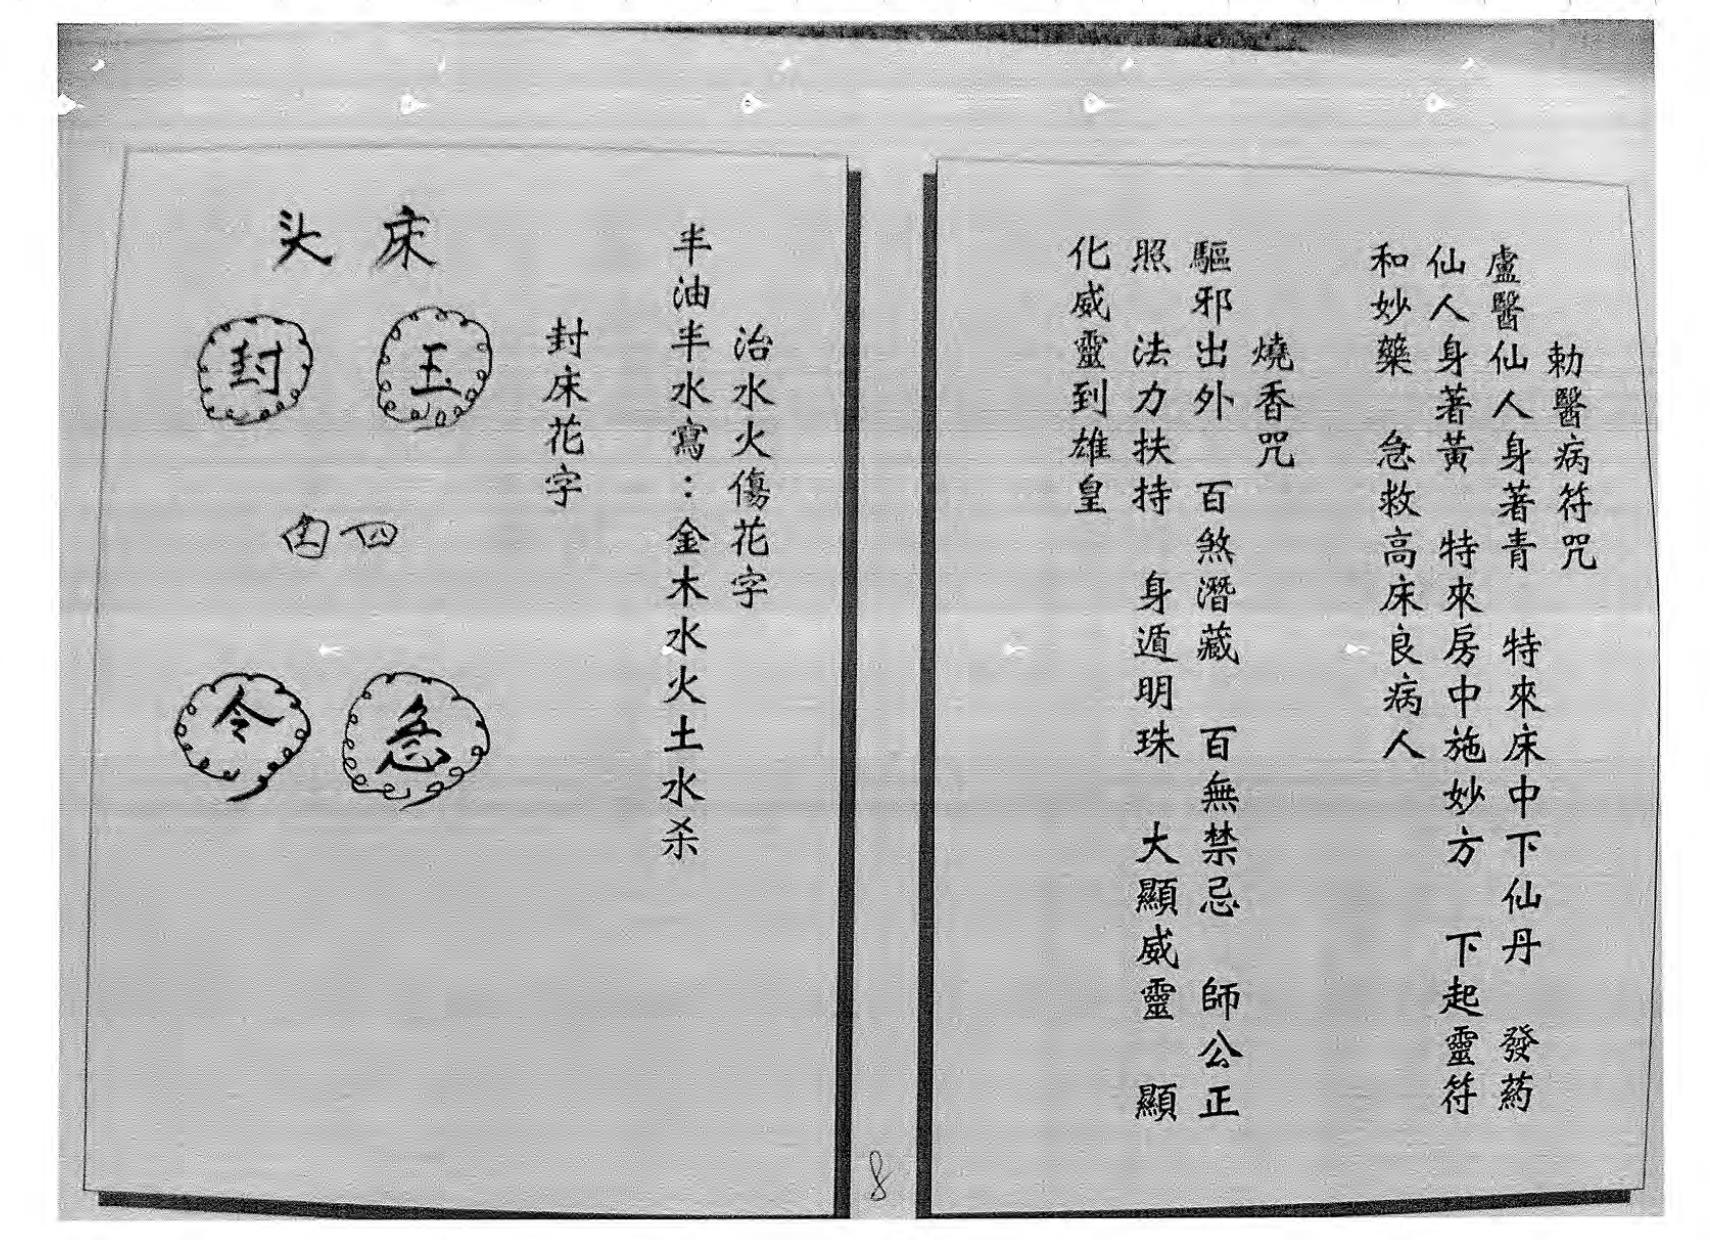 勅醫病符咒
盧醫仙人身著青 特來床中下仙丹 發药
仙人身著黃 特來房中施妙方 下起靈符
和妙藥 急救高床良病人
燒香咒
驅邪出外 百煞潛藏 百無禁忌 師公正
照 法力扶持 身遁明珠 大顯威靈 顯
化威靈到雄皇
治水火傷花字
半油半水寫：金木水火土水杀
封床花字
床头
王 封
急 令
8